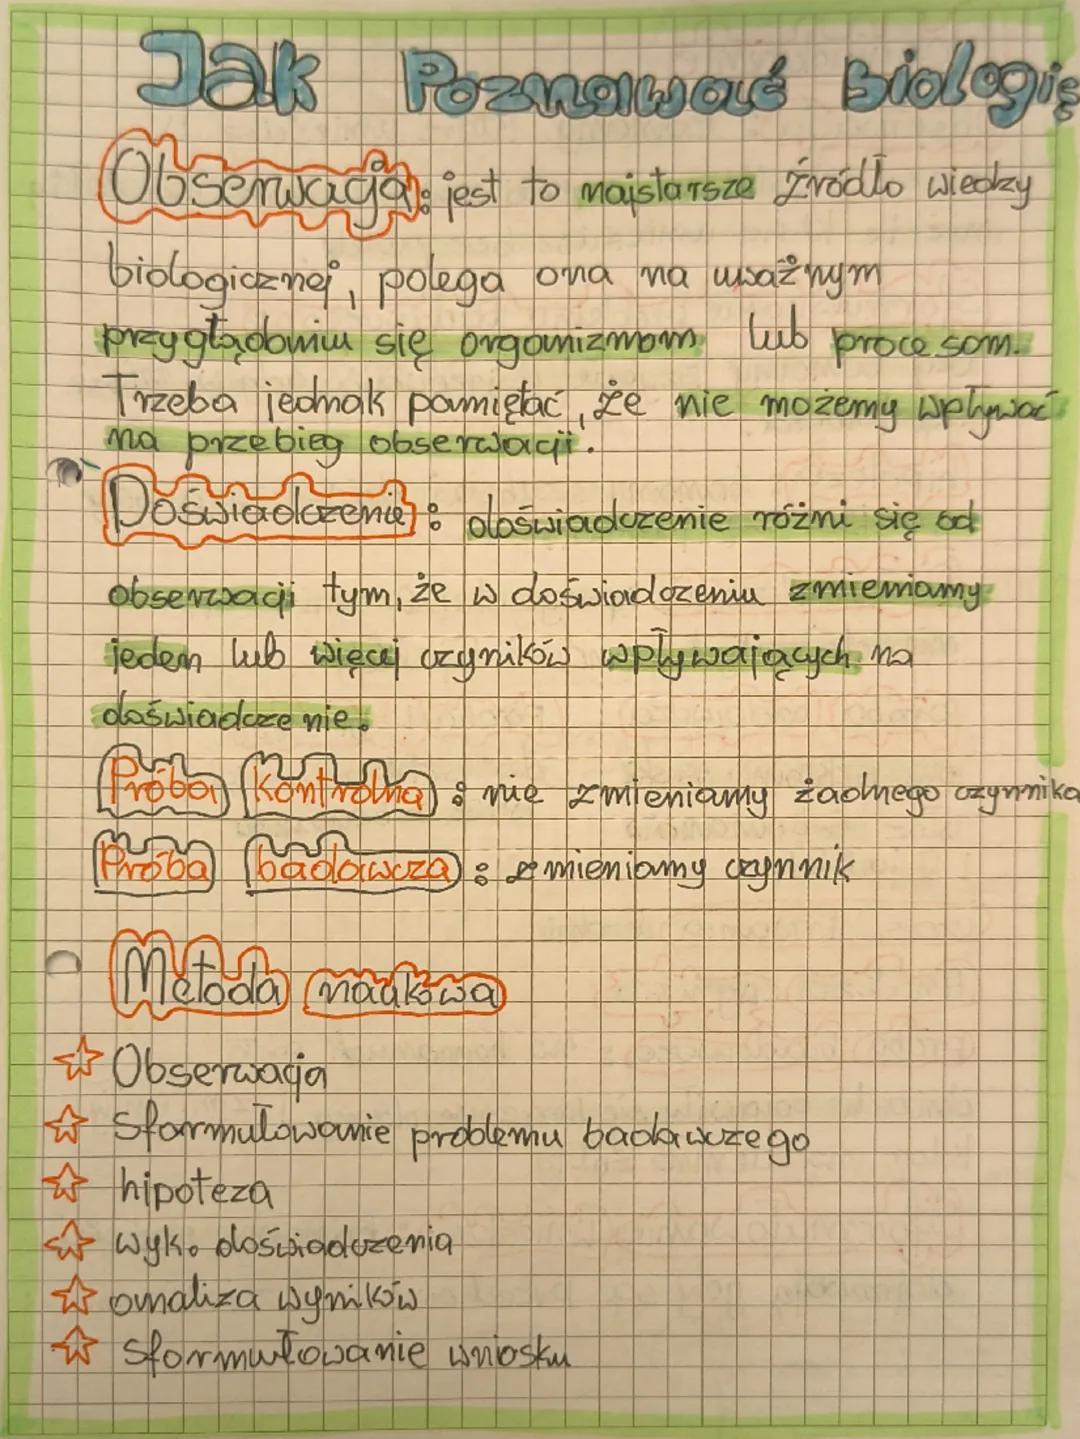 Jak Poznawać Biologię
Obserwacja: jest to najstarsze źródło wiedzy
biologicznej, polega ona na uważnym
przyglądaniu się organizmom lub procesom.
Trzeba jednak pamiętać, że nie możemy wpływać
na przebieg obserwacji.
Doświadczenie: doświadczenie różni się od
obserwacji tym, że w doświadczeniu zmieniamy
jeden lub więcej czyników wpływających na
doświadczenie.
Próba kontrolna: nie zmieniamy żadnego czynnika
Próba badawcza: zmieniamy czynnik
Metoda naukowa
☆ Obserwacja
☆ Sformułowanie problemu badawczego
☆ hipoteza
☆ wyk. doświadczenia
☆ analiza wyników
☆ sformułowanie wniosku